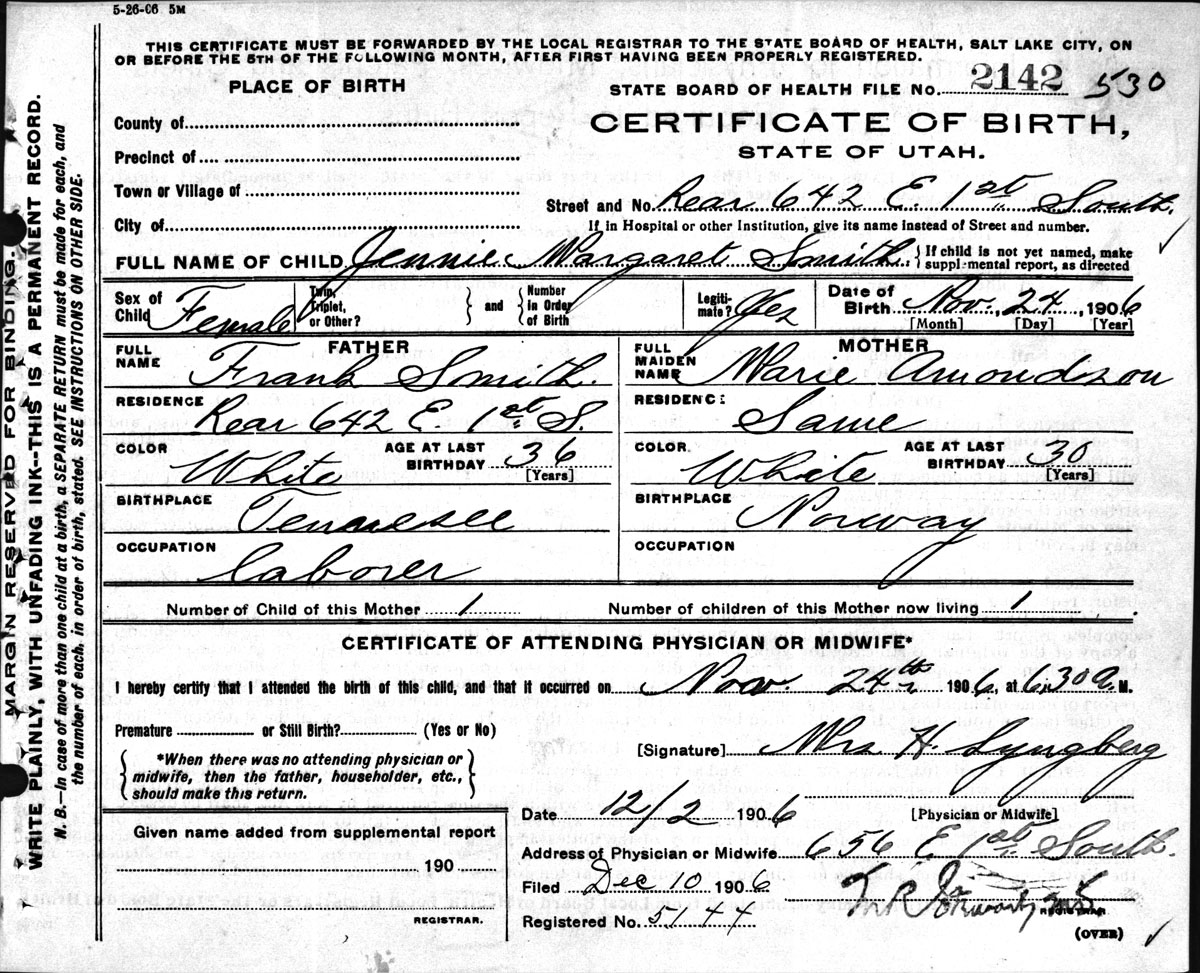 5-26-06 5M
THIS CERTIFICATE MUST BE FORWARDED BY THE LOCAL REGISTRAR TO THE STATE BOARD OF HEALTH, SALT LAKE CITY, ON
OR BEFORE THE 5TH OF THE FOLLOWING MONTH, AFTER FIRST HAVING BEEN PROPERLY REGISTERED.
PLACE OF BIRTH
STATE BOARD OF HEALTH FILE NO. 2142 530
County of
CERTIFICATE OF BIRTH,
Precinct of
STATE OF UTAH.
Town or Village of
Street and No. Rear 642 E. 1st South.
City of
If in Hospital or other Institution, give its name instead of Street and number.
FULL NAME OF CHILD Jennie Margaret Smith { If child is not yet named, make supplemental report, as directed
Sex of Child Female Twin, Triplet, or Other? } and { Number in Order of Birth Legiti-mate? Yes Date of Birth Nov. 24, 1906
[Month] [Day] [Year]
FATHER
FULL NAME Frank Smith.
RESIDENCE Rear 642 E. 1st S.
COLOR White AGE AT LAST BIRTHDAY 36 [Years]
BIRTHPLACE Tennessee
OCCUPATION laborer
MOTHER
FULL MAIDEN NAME Marie Amondson
RESIDENCE Same
COLOR White AGE AT LAST BIRTHDAY 30 [Years]
BIRTHPLACE Norway
OCCUPATION
Number of Child of this Mother 1 Number of children of this Mother now living 1
CERTIFICATE OF ATTENDING PHYSICIAN OR MIDWIFE*
I hereby certify that I attended the birth of this child, and that it occurred on Nov. 24th 1906, at 6:30 A. M.
Premature or Still Birth? (Yes or No)
[Signature] Mrs H. Lyngberg
{ *When there was no attending physician or
midwife, then the father, householder, etc.,
should make this return. }
Date 12/2 1906 [Physician or Midwife]
Given name added from supplemental report
190
REGISTRAR.
Address of Physician or Midwife 656 E 1st South.
Filed Dec 10 1906
REGISTRAR
Registered No. 5144
(OVER)
MARGIN RESERVED FOR BINDING.
WRITE PLAINLY, WITH UNFADING INK--THIS IS A PERMANENT RECORD.
N. B.—In case of more than one child at a birth, a SEPARATE RETURN must be made for each, and
the number of each, in order of birth, stated. SEE INSTRUCTIONS ON OTHER SIDE.